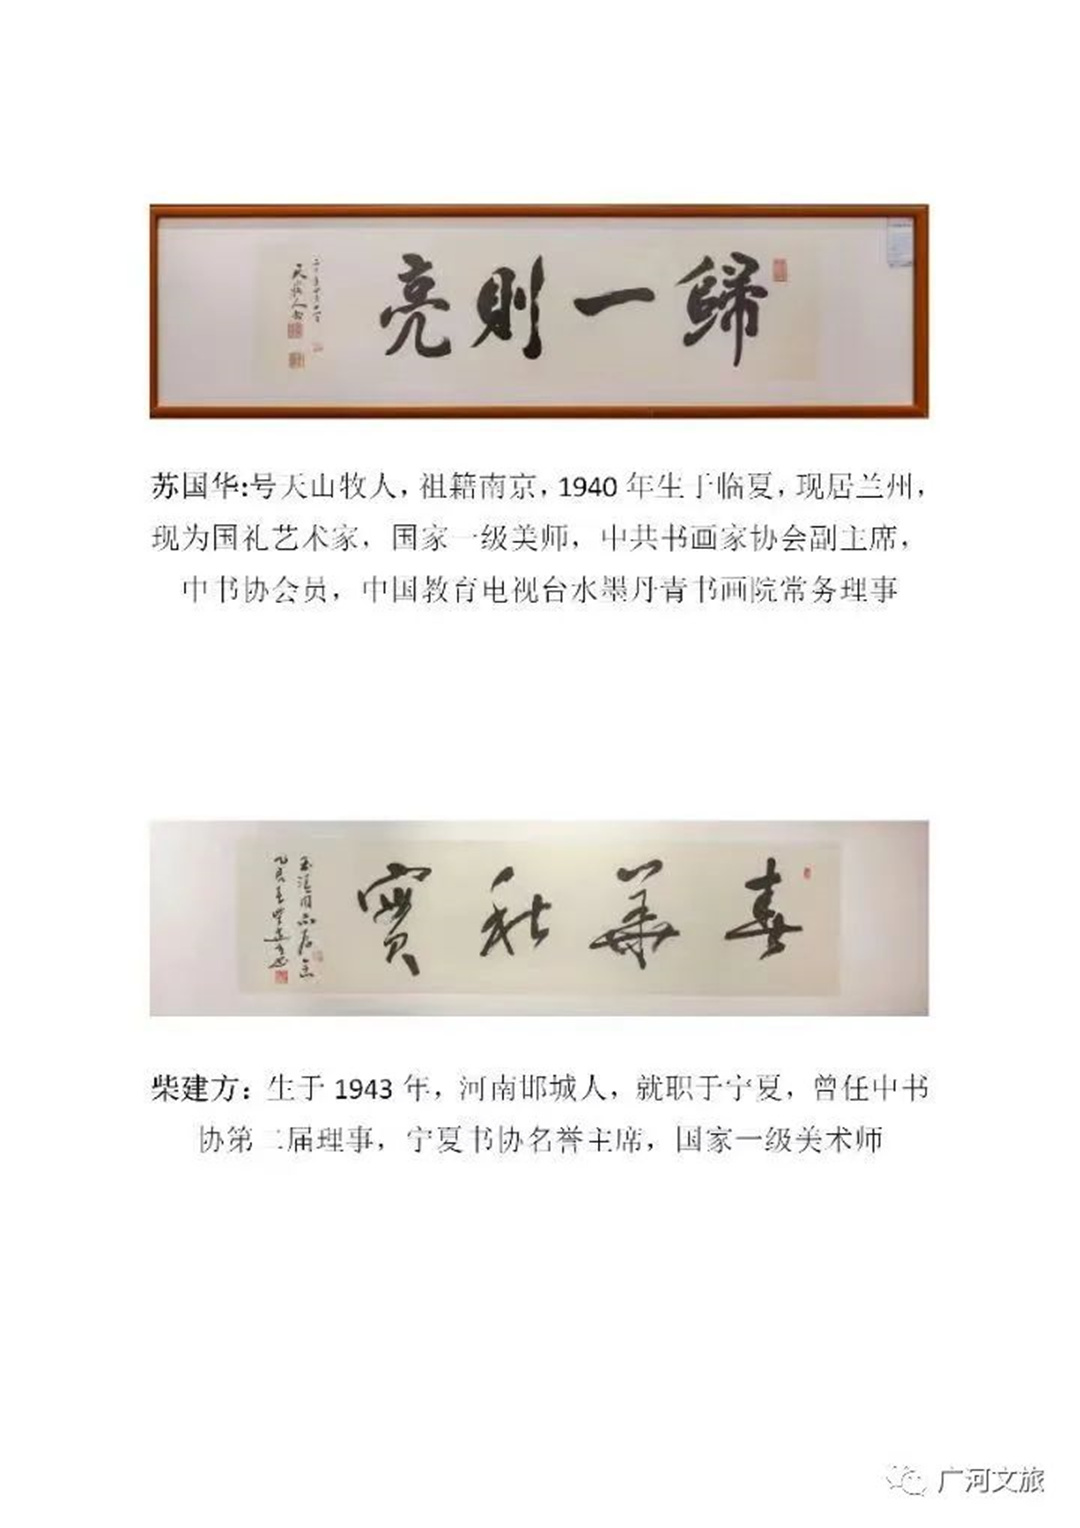 歸一則亮
天山牧人書
苏国华:号天山牧人，祖籍南京，1940 年生于临夏，现居兰州，
现为国礼艺术家，国家一级美师，中共书画家协会副主席，
中书协会员，中国教育电视台水墨丹青书画院常务理事
春華秋實
柴建方：生于 1943 年，河南郸城人，就职于宁夏，曾任中书
协第二届理事，宁夏书协名誉主席，国家一级美术师
广河文旅